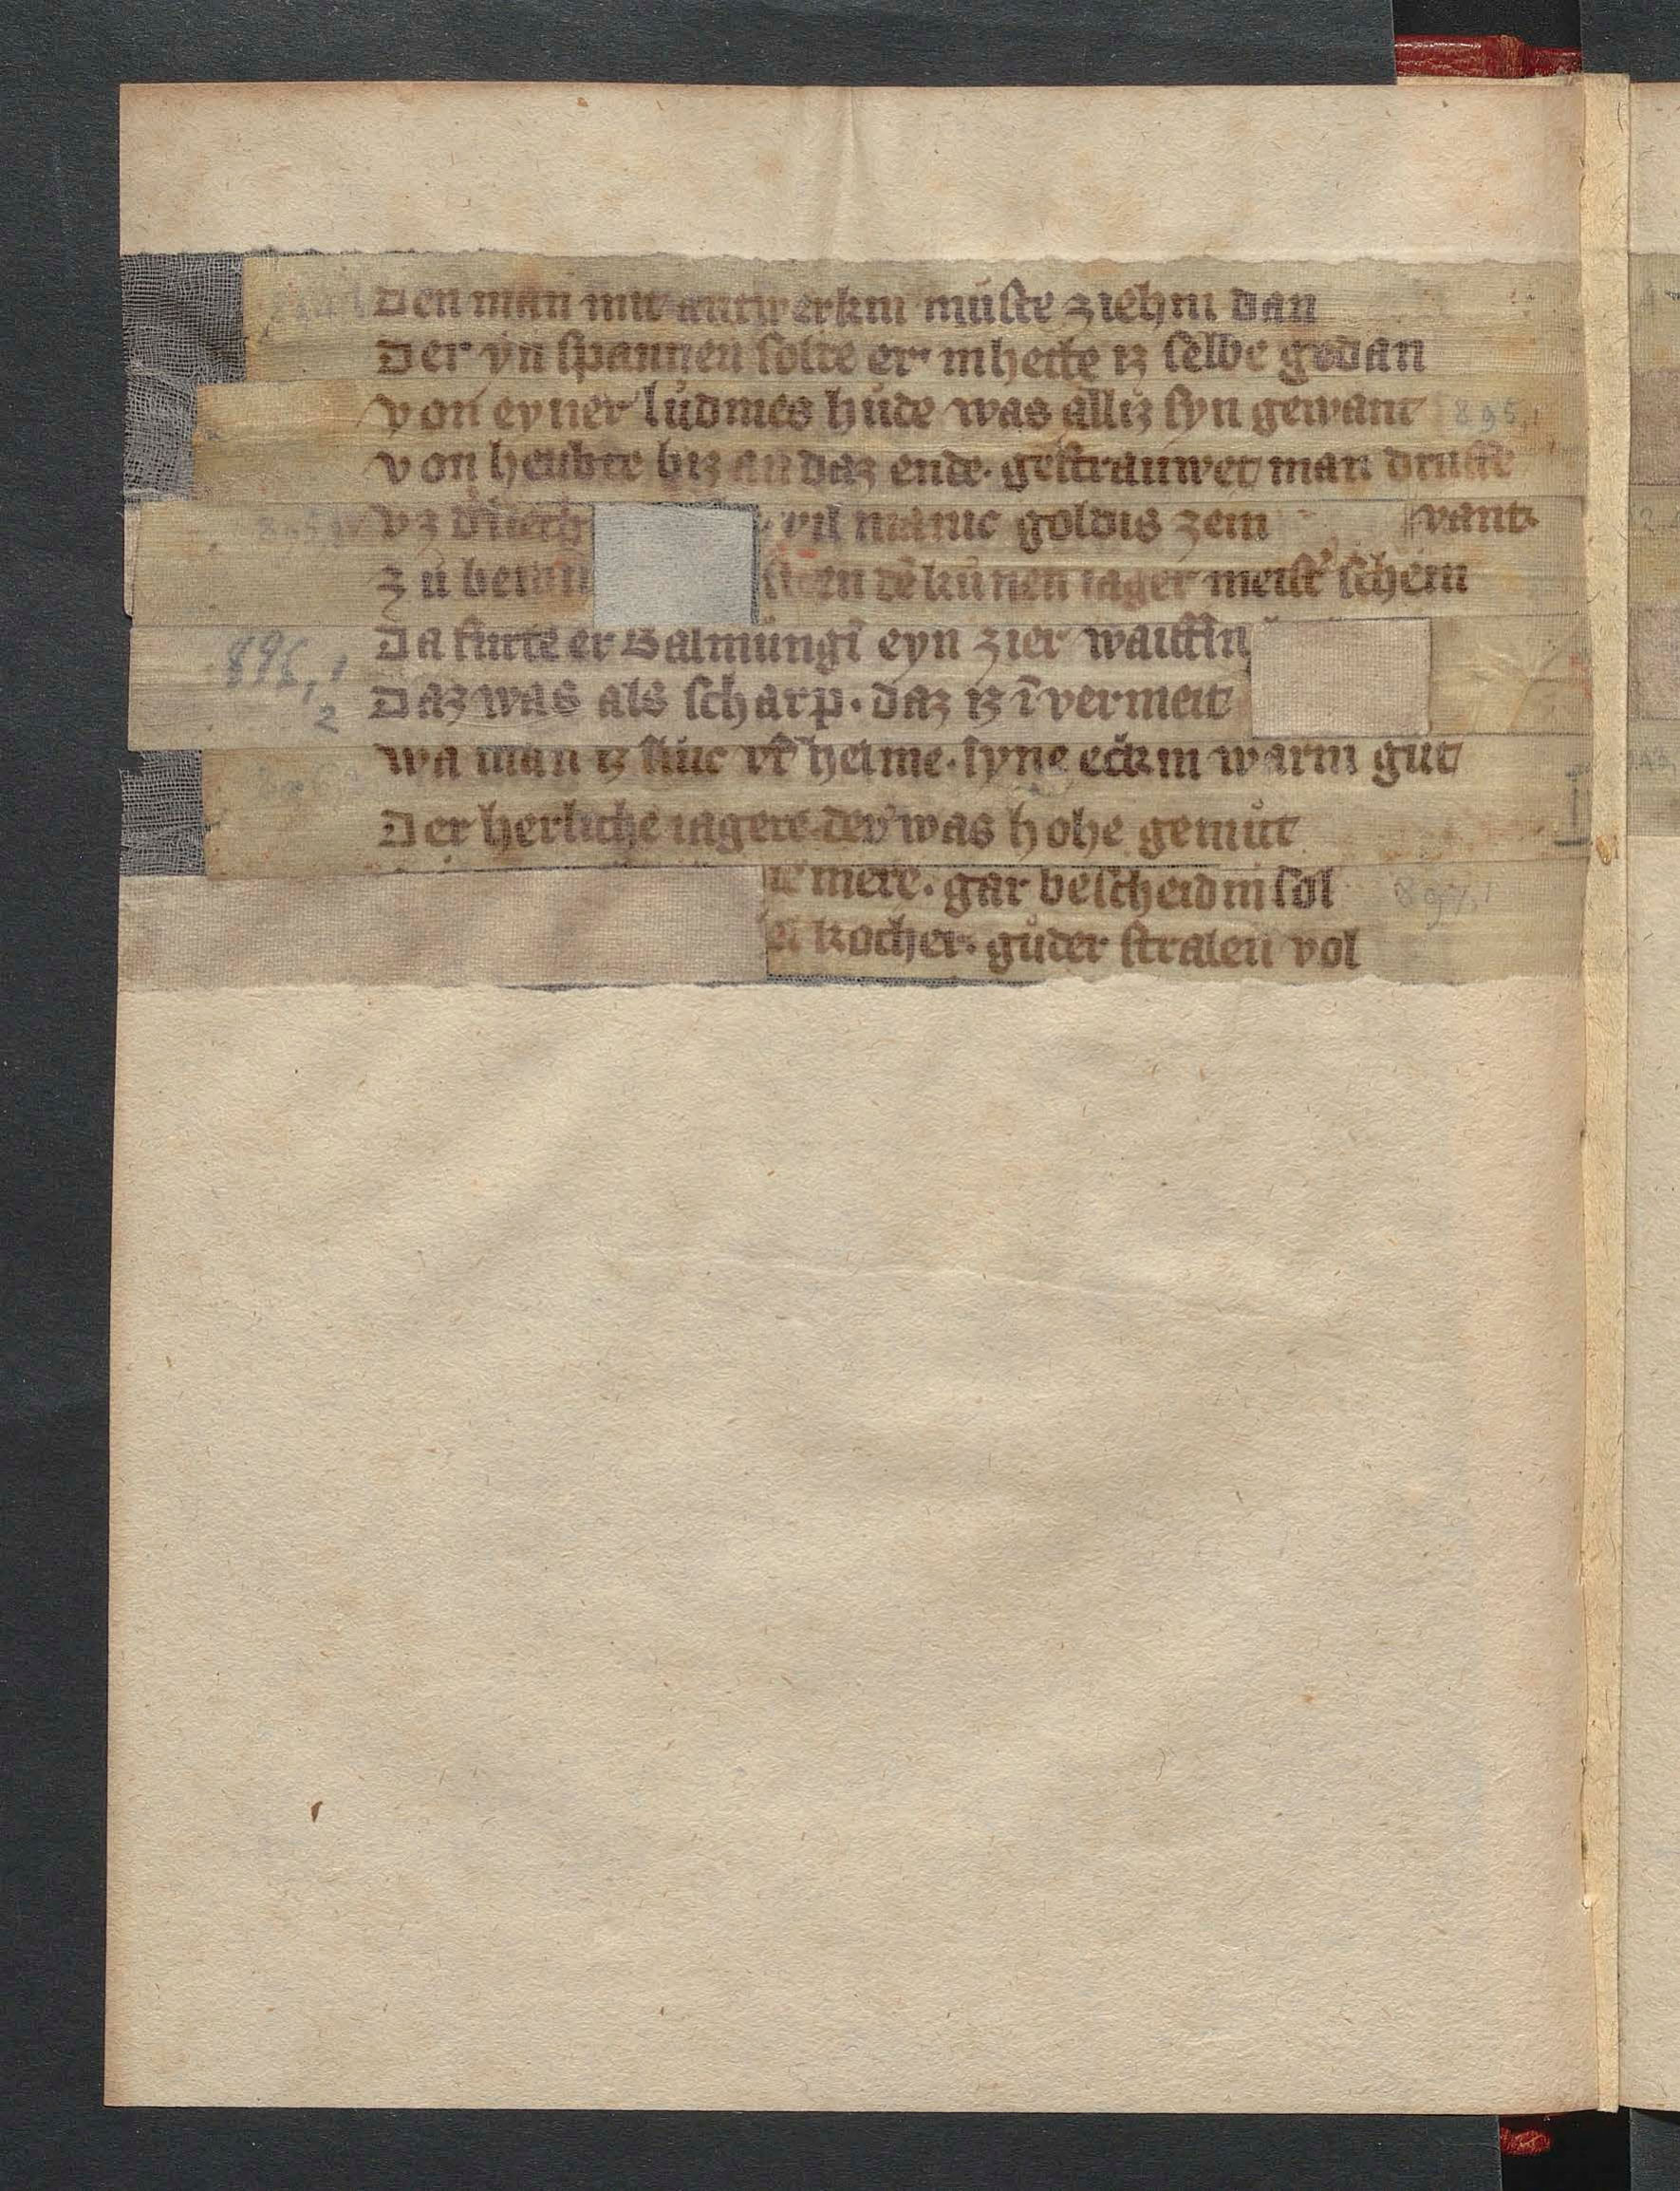 Den man mit antwerkin mūste ziehin dan
Der yn spannen solte er inhette iz selbe gedan
von eyner lůdmes hůde was alliz syn gewant 895,1
von heubte biz an daz ende. gestrauwet man druffe
vz d' vil manic goldis zein vant
zů sten dē kůnen iager meist' schein
896,1 Da fůrte er Balmungī eyn zier waiffin
2 Daz was als scharp. daz iz ī vermeit
wa man iz slůc vf helme. syne eckin warin gůt
Der herliche iagere der was hohe gemůt
ie mere. gar bescheidin sol 897,1
kocher. gůder stralen vol